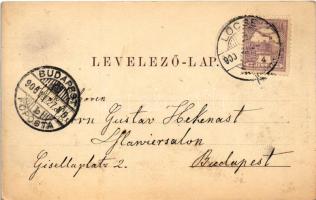 LŐCSE
903
4
LEVELEZŐ-LAP.
BUDAPEST
FŐPOSTA
Herrn Gustav Hekenast
Klaviersalon
Gisellaplatz 2. Budapest